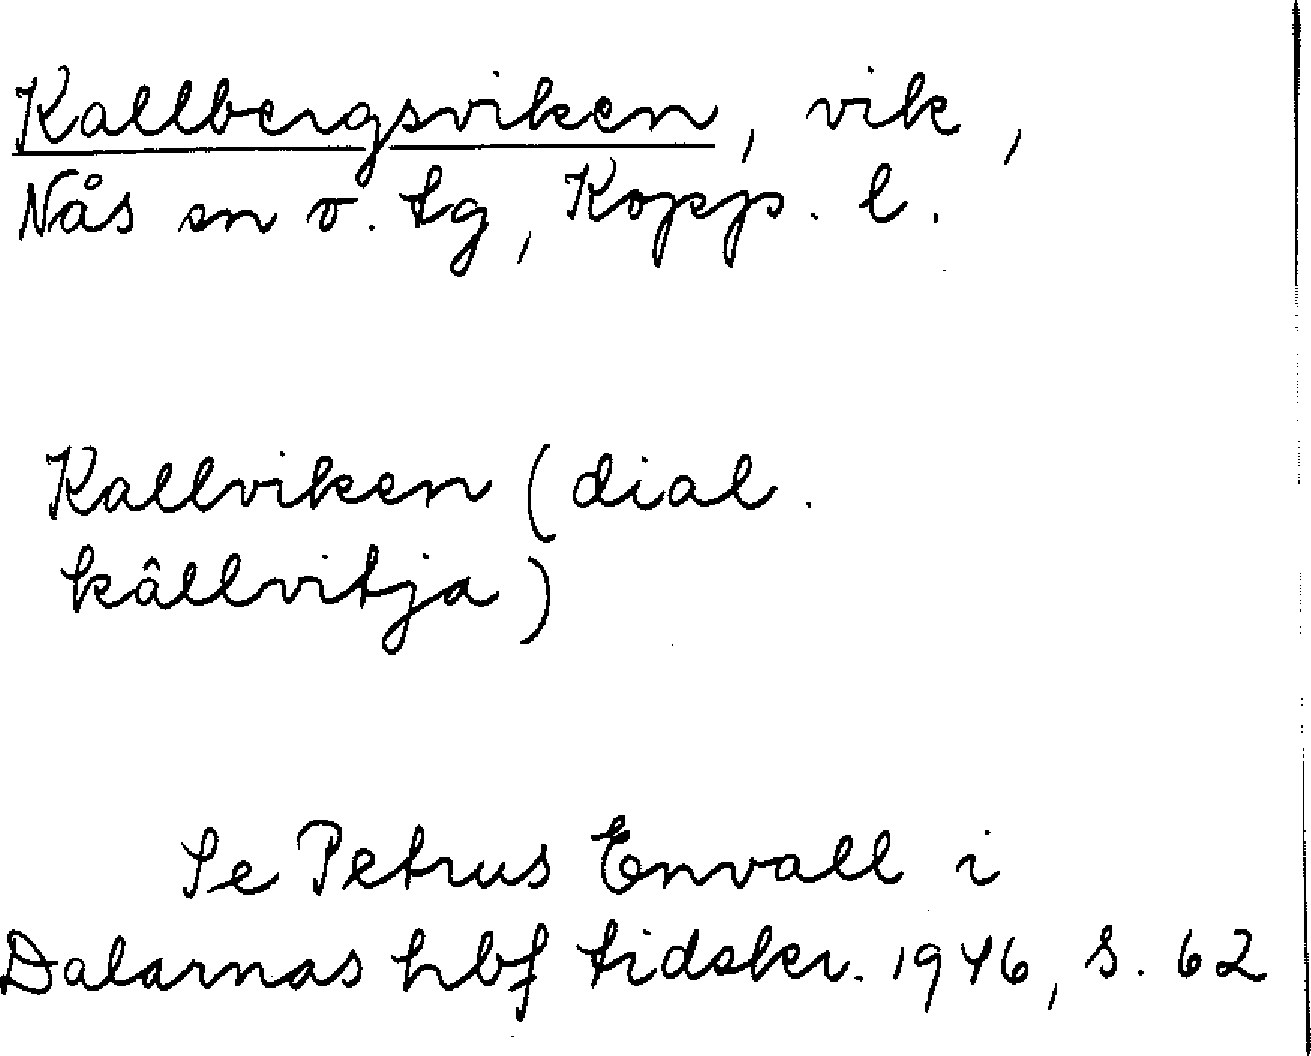 Kallbergsviken, vik,
Nås sn v. tg, Kopp. l.
Kallviken (dial.
kâllvitja)
Se Petrus Envall i
Dalarnas hbf tidskr. 1946, s. 62